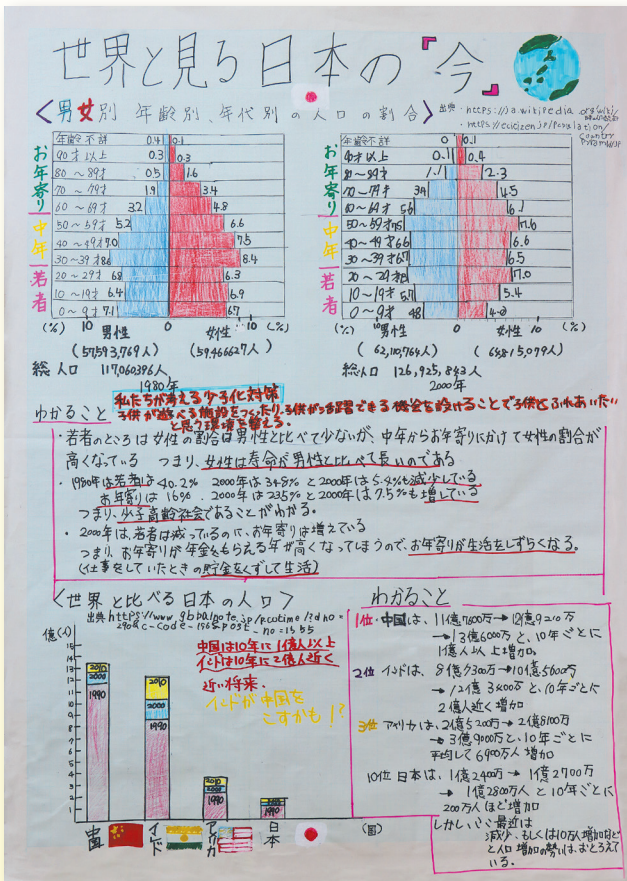 世界と見る日本の『今』
〈男女別 年齢別、年代別の人口の割合〉
出典・https://ja.wikipedia.org/wiki/
年齢不詳 0.4 0.1
90才以上 0.3 0.3
80～89才 0.5 1.6
70～79才 1.9 3.4
60～69才 3.2 4.8
50～59才 5.2 6.6
40～49才 7.0 7.5
30～39才 8.6 8.4
20～29才 6.8 6.3
10～19才 6.4 6.9
0～9才 7.1 6.7
お年寄り 中年 若者
(%) 10 男性 0 女性 10 (%)
(57,593,769人) (59,466,627人)
総人口 117,060,396人
1980年
年齢不詳 0 0.1
90才以上 0.1 0.4
80～89才 1.1 2.3
70～79才 3.4 4.5
60～69才 5.6 6.1
50～59才 7.5 7.6
40～49才 6.6 6.6
30～39才 6.7 6.5
20～29才 7.0
10～19才 5.7 5.4
0～9才 4.8
お年寄り 中年 若者
(%) 10 男性 0 女性 10 (%)
(62,110,764人) (64,815,079人)
総人口 126,925,843人
2000年
私たちが考える少子化対策
わかること
子供が遊べる施設をつくったり、子供が活躍できる機会を設けることで子供とふれあいたい
と思う環境を整える。
・若者のところは女性の割合は男性と比べて少ないが、中年からお年寄りにかけて女性の割合が
高くなっている つまり、女性は寿命が男性と比べて長いのである
・1980年は若者は40.2% 2000年は34.8%と2000年は5.4%も減少している
お年寄りは16% 2000年は23.5%と2000年は7.5%も増している
つまり、少子高齢社会であることがわかる。
・2000年は、若者は減っているのに、お年寄りは増えている
つまり、お年寄りが年金をもらえる年が高くなってしまうので、お年寄りが生活をしずらくなる。
(仕事をしていたときの貯金をくずして生活)
〈世界と比べる日本の人口〉
中国は10年に1億人以上
インドは10年に2億人近く
近い将来、
インドが中国を
こすかも!?
億(人)
15
14
13
12
11
10
9
8
7
6
5
4
3
2
1
2010
2000
1990
2010
2000
1990
2010
2000
1990
2010
2000
1990
中国 インド アメリカ 日本 (国)
わかること
1位・中国は、11億7600万→12億9210万
→13億6000万と、10年ごとに
1億人以上増加。
2位 インドは、8億7300万→10億5600万
→12億3400万と、10年ごとに
2億人近く増加
3位 アメリカは、2億5200万→2億8100万
→3億9000万と、10年ごとに
平均して6900万人増加
10位 日本は、1億2400万→1億2700万
→1億2800万人と10年ごとに
200万人ほど増加
しかしここ最近は
減少、もしくは10万人増加など
と人口増加の勢いは、おとろえて
いる。